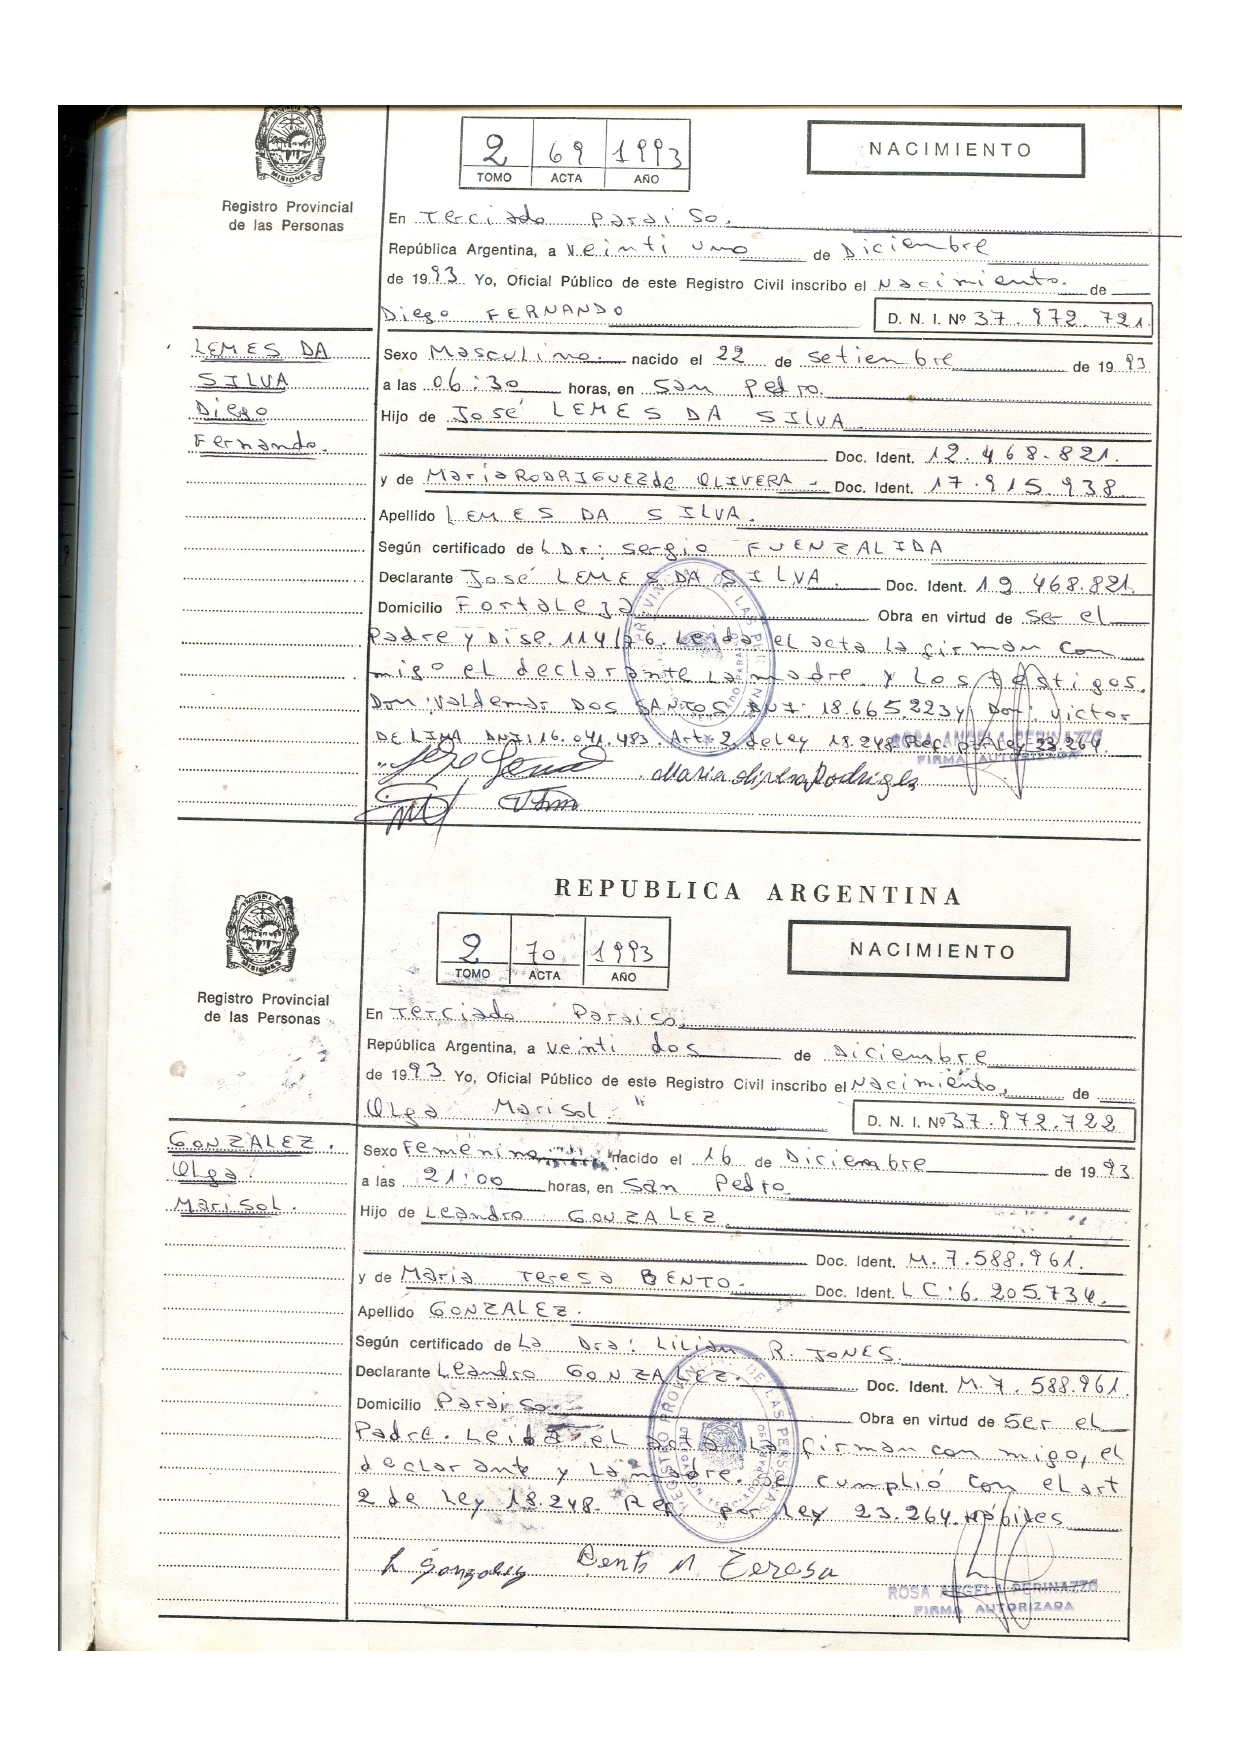 PROVINCIA DE
MISIONES
Registro Provincial
de las Personas
2 69 1993
TOMO ACTA AÑO
NACIMIENTO
En Terciado Paraiso.
República Argentina, a Veinti uno de Diciembre
de 1993 Yo, Oficial Público de este Registro Civil inscribo el Nacimiento. de
Diego FERNANDO D. N. I. Nº 37.972.721
LEMES DA
SILVA
Diego
Fernando.
Sexo Masculino. nacido el 22 de Setiembre de 1993
a las 06:30 horas, en San Pedro.
Hijo de José LEMES DA SILVA
Doc. Ident. 12.468.821.
y de María RODRIGUEZ de OLIVERA - Doc. Ident. 17.915.938
Apellido LEMES DA SILVA.
Según certificado de L Dr: Sergio FUENZALIDA
Declarante José LEMES DA SILVA. Doc. Ident. 19.468.821
Domicilio Fortaleza Obra en virtud de ser el
Padre y Disp. 114/76. Leida el acta la firman con
migo el declarante La madre y Los testigos.
Don: Valdemar DOS SANTOS DNI: 18.665.223 y Don: Victor
DE LIMA DNI: 16.041.483. Art: 2 de Ley 18.248 Rep. p. Ley 23.264.
ROSA ANGELA PERINAZZO
FIRMA AUTORIZADA
Maria olivera Rodrigez
REPUBLICA ARGENTINA
PROVINCIA DE
MISIONES
Registro Provincial
de las Personas
2 70 1993
TOMO ACTA AÑO
NACIMIENTO
En Terciado Paraiso,
República Argentina, a Veinti dos de Diciembre
de 1993 Yo, Oficial Público de este Registro Civil inscribo el Nacimiento, de
Olga Marisol D. N. I. Nº 37.972.722
GONZALEZ.
Olga
Marisol.
Sexo Femenino nacido el 16 de Diciembre de 1993
a las 21:00 horas, en San Pedro
Hijo de Leandro GONZALEZ
Doc. Ident. M. 7.588.961.
y de Maria Teresa BENTO. Doc. Ident. LC: 6.205.734.
Apellido GONZALEZ.
Según certificado de La Dra: Lilian R. JONES.
Declarante Leandro GONZALEZ. Doc. Ident. M. 7.588.961
Domicilio Paraiso Obra en virtud de Ser el
Padre. Leida el acta La firman con migo, el
declarante y La madre. Se cumplió con el art
2 de Ley 18.248 Rep por Ley 23.264. Hábiles
L Gonzalez Bento M Teresa
ROSA ANGELA PERINAZZO
FIRMA AUTORIZADA
REGISTRO PROVINCIAL DE LAS PERSONAS